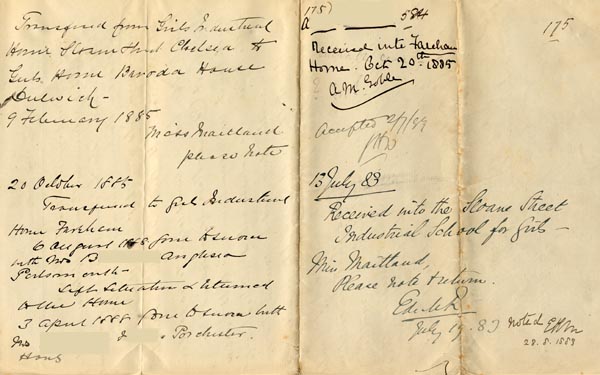 Transferred from Girls Industrial
Home Sloane Street Chelsea to
Girls Home Baroda House
Dulwich -
9 February 1885
Miss Maitland
please note
20 October 1885
Transferred to girls Industrial
Home Fareham
6 August 1888 gone to service
with Mrs B Anglesea
Portsmouth -
Left Situation & returned
to the Home
3 April 1888 gone to service with
Mrs Porchester.
Hants
175)
A 584
Received into Fareham
Home. Oct 20th 1885
A.M. Goble
Accepted 2/7/83
13 July 83
Received into the Sloane Street
Industrial School for Girls -
Miss Maitland,
Please note & return.
July 19. 83
noted
28.5.1889
175